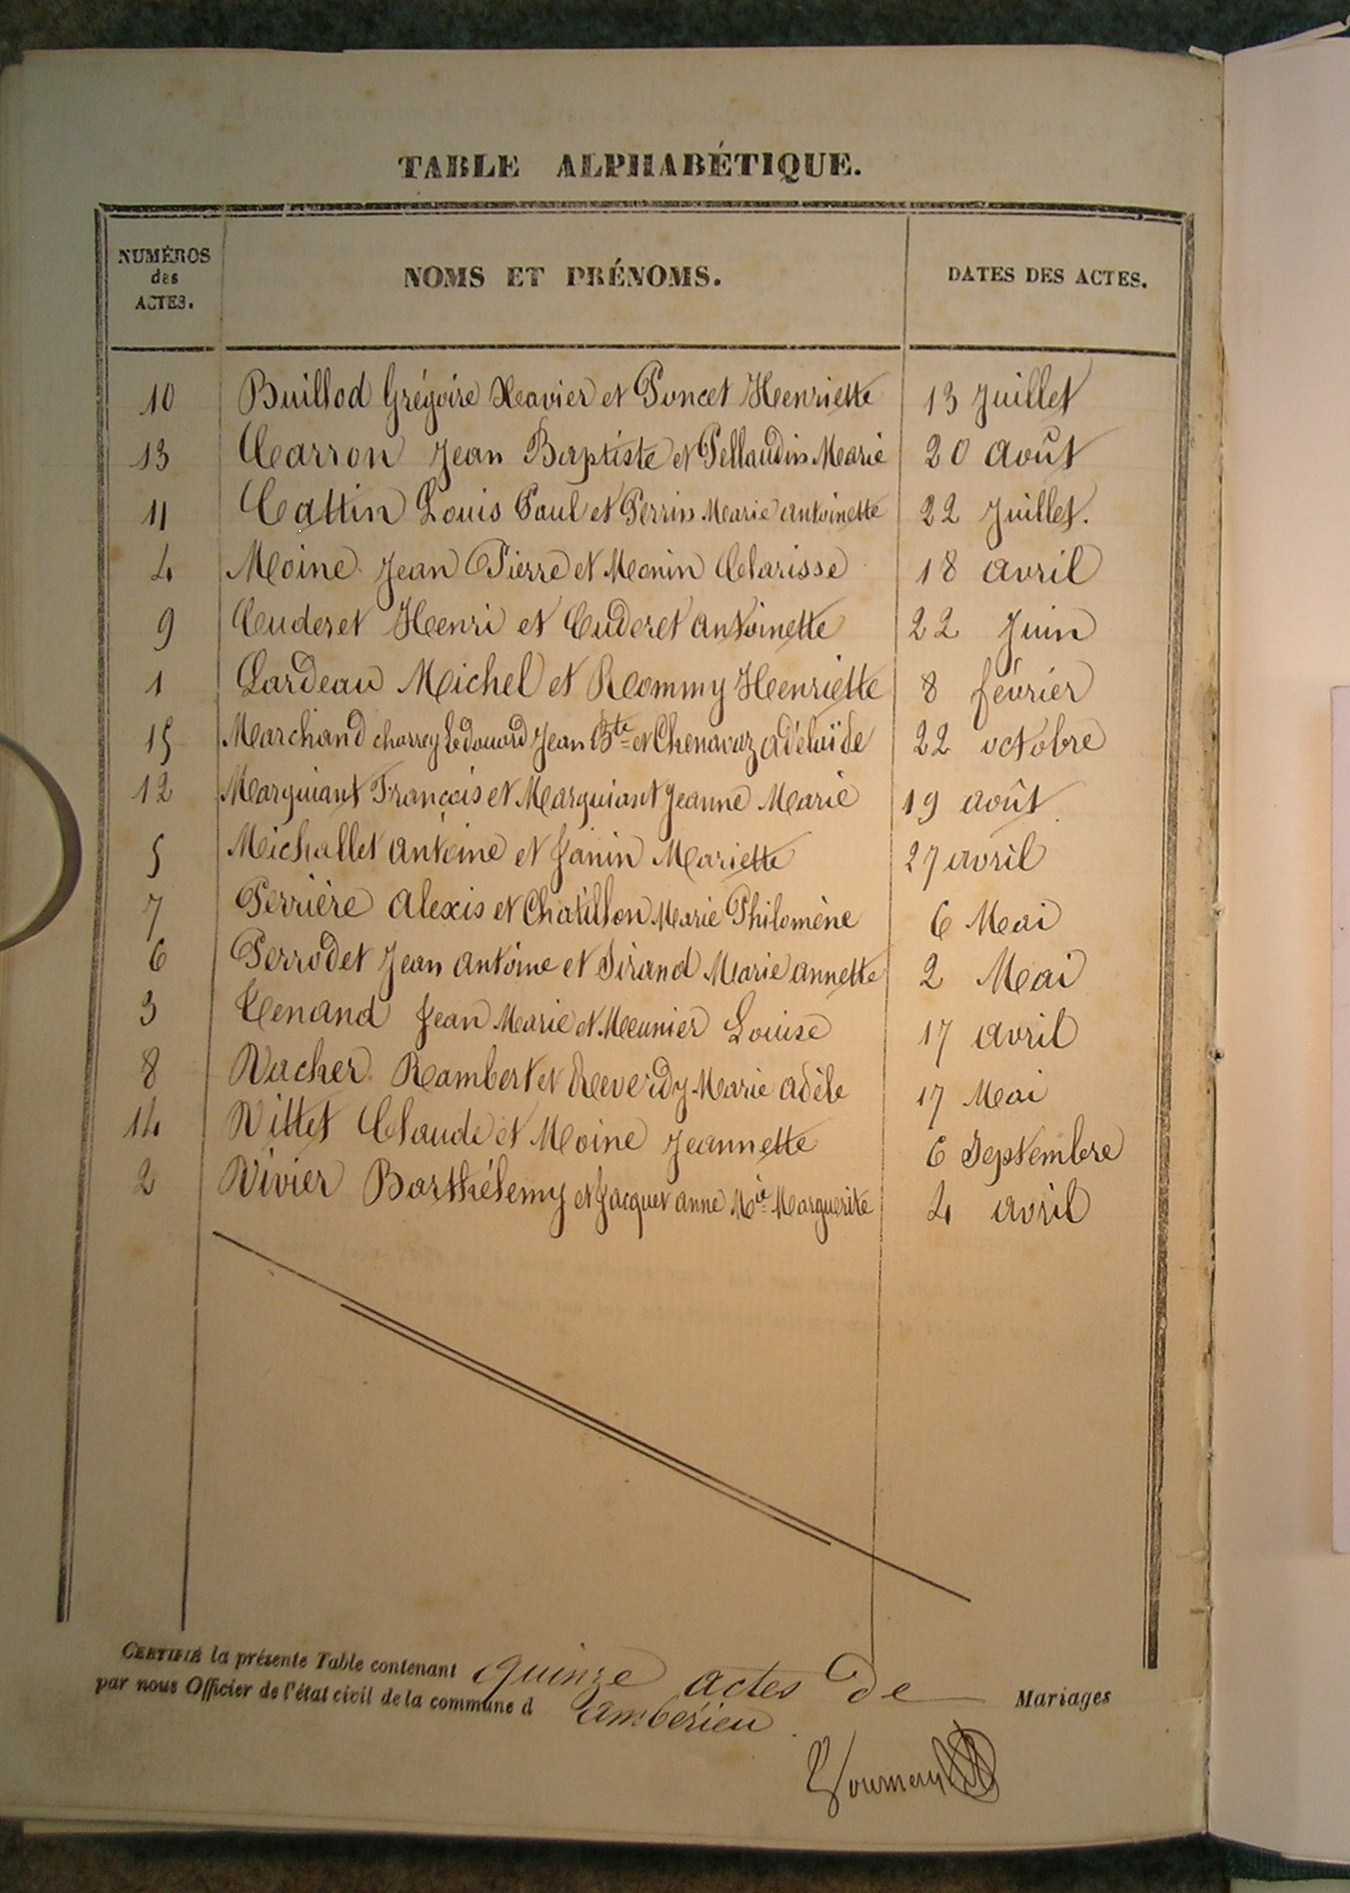 TABLE ALPHABÉTIQUE.
NUMÉROS des ACTES. NOMS ET PRÉNOMS. DATES DES ACTES.
10 Buillod Grégoire Xavier et Poncet Henriette 13 Juillet
13 Carron Jean Baptiste et Pellaudin Marie 20 août
11 Cattin Louis Paul et Perrin Marie antoinette 22 Juillet.
4 Moine Jean Pierre et Monin Clarisse 18 avril
9 Cuderet Henri et Cuderet antoinette 22 Juin
1 Lardeau Michel et Rommy Henriette 8 février
15 Marchand charrey Edouard Jean Bte et Chenavaz adélaïde 22 octobre
12 Marguiant François et Marguiant Jeanne Marie 19 août.
5 Michallet antoine et Janin Mariette 27 avril
7 Perrière alexis et Chatillon Marie Philomène 6 Mai
6 Perrodet Jean antoine et Sirand Marie annette 2 Mai
3 Tenand Jean Marie et Meunier Louise 17 avril
8 Vacher Rambert et Reverdy Marie adèle 17 Mai
14 Vittet Claude et Moine Jeannette 6 Septembre
2 Vivier Barthélemy et Jacquet anne Mie Marguerite 4 avril
CERTIFIÉ la présente Table contenant quinze actes de Mariages
par nous Officier de l'état civil de la commune d ambérieu.